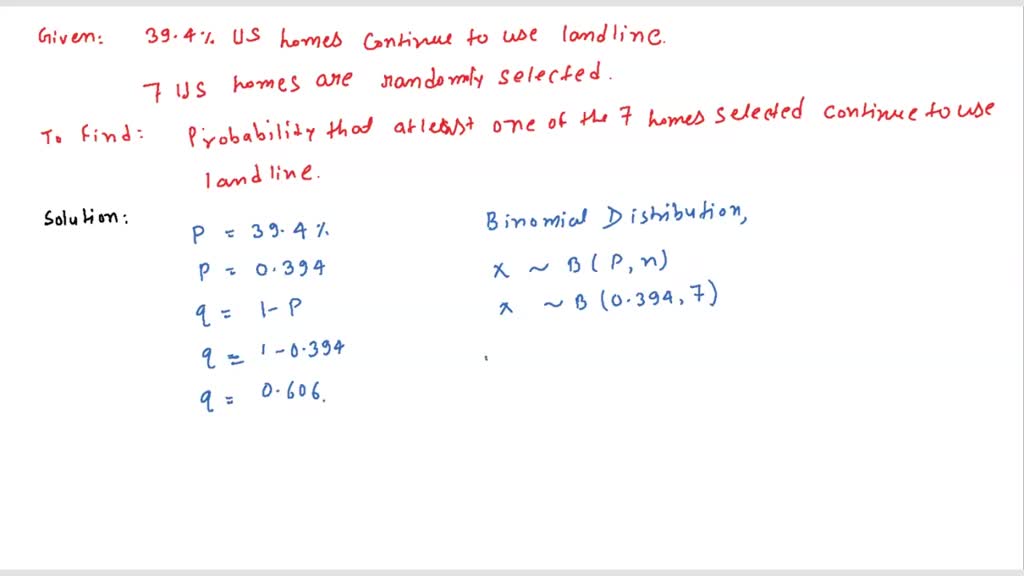 Given: 39.4% US homes continue to use landline.
7 US homes are randomly selected.
To Find: Probability that atleast one of the 7 homes selected continue to use
landline.
Solution:
P = 39.4%
P = 0.394
q = 1-P
q = 1-0.394
q = 0.606.
Binomial Distribution,
x ~ B(P,n)
x ~ B(0.394,7)